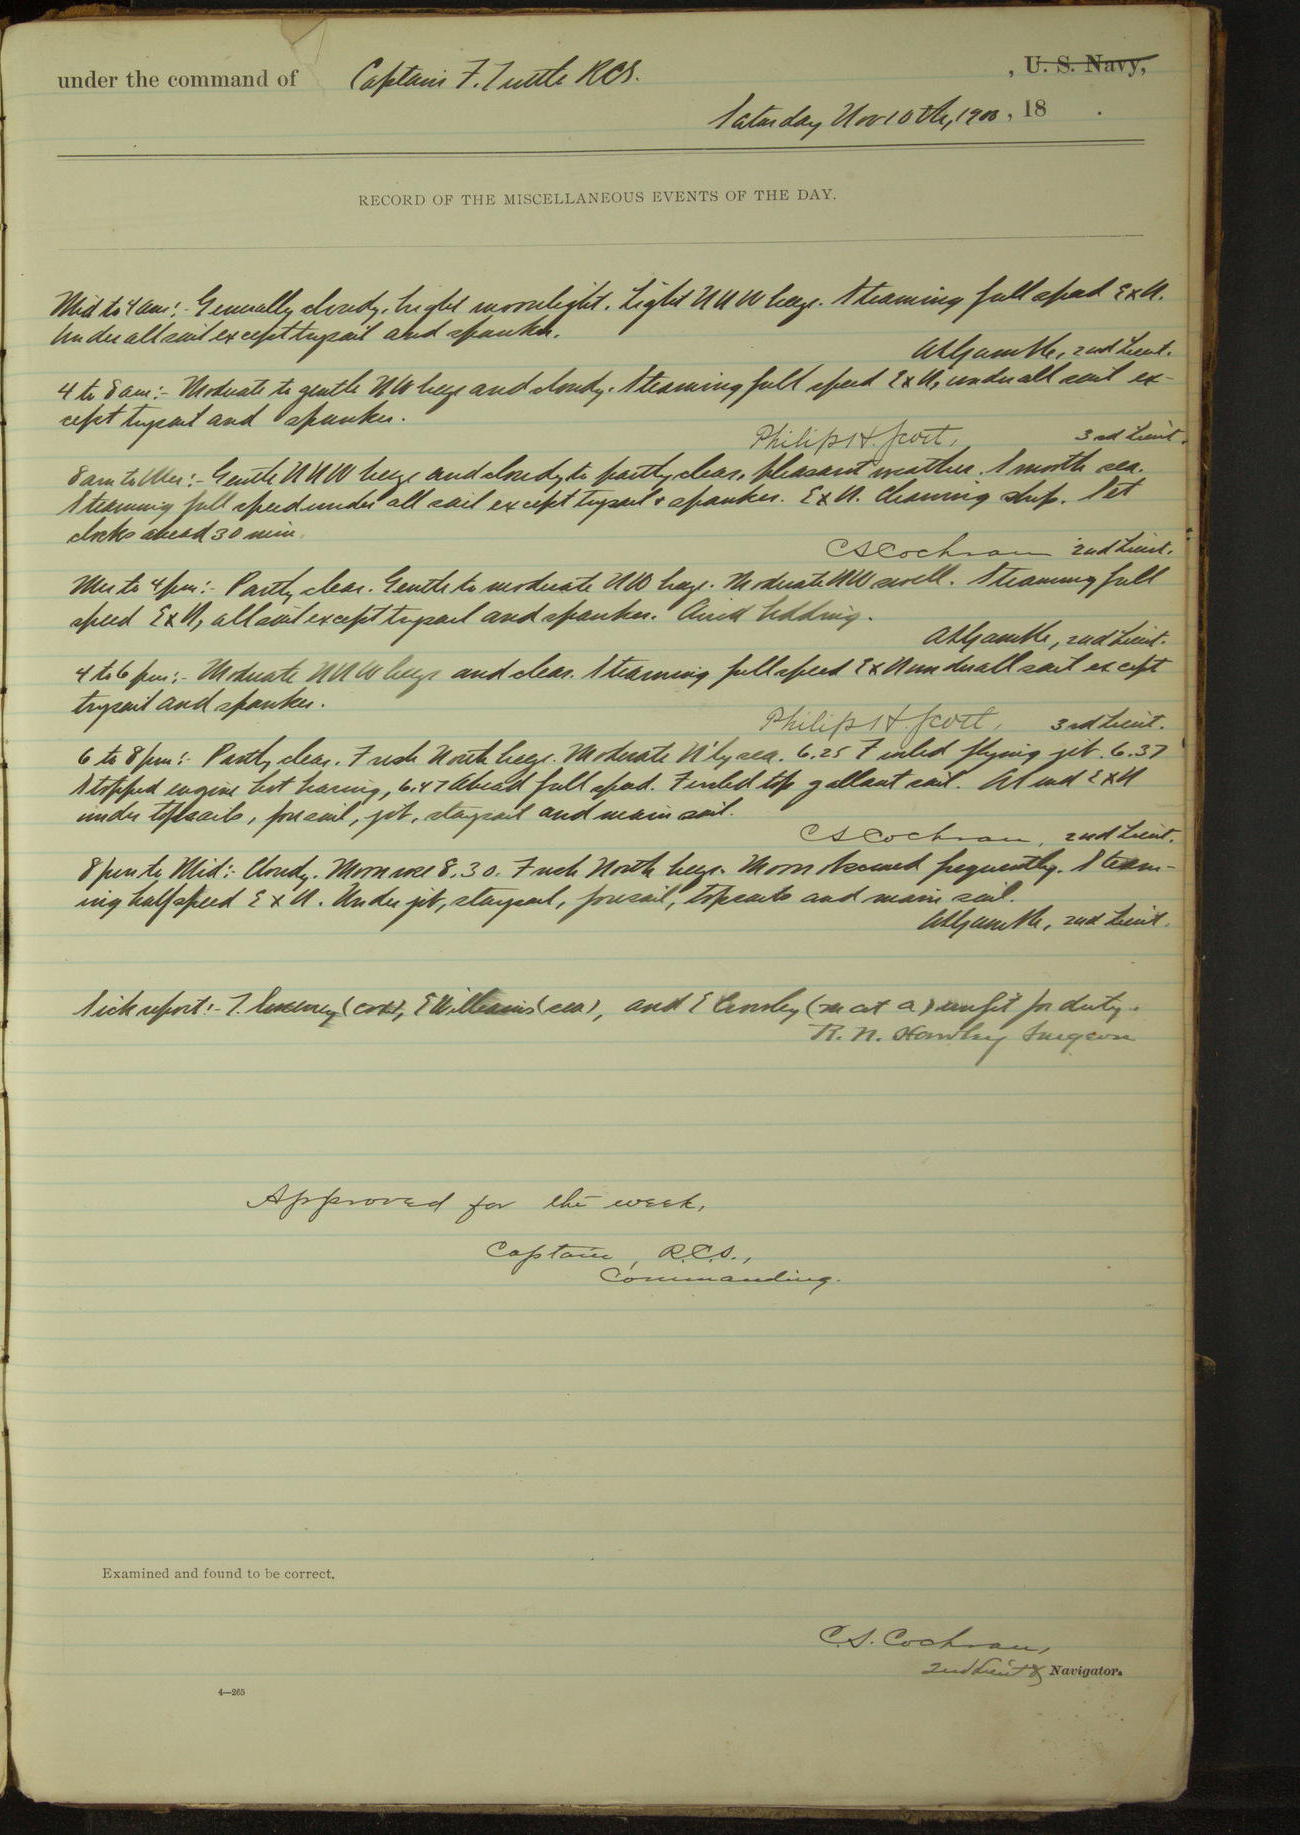 under the command of Captain F. Tuttle RCS. , U. S. Navy,
Saturday Nov 10th, 1900, 18 .
RECORD OF THE MISCELLANEOUS EVENTS OF THE DAY.
Mid to 4 am:- Generally cloudy, bright moonlight. Light NNW breeze. Steaming full speed E x N.
Under all sail except trysail and spanker.
A L Gamble, 2nd Lieut.
4 to 8 am:- Moderate to gentle NW breeze and cloudy. Steaming full speed E x N, under all sail ex-
cept trysail and spanker.
Philip H. Scott, 3rd Lieut.
8 am to Mer:- Gentle NNW breeze and cloudy to partly clear, pleasant weather. Smooth sea.
Steaming full speed under all sail except trysail & spanker. E x N. Cleaning ship. Set
clocks ahead 30 min.
C S Cochran 2nd Lieut.
Mer to 4 pm:- Partly clear. Gentle to moderate NW breeze. Moderate NW swell. Steaming full
speed E x N, all sail except trysail and spanker. Aired bedding.
A L Gamble, 2nd Lieut.
4 to 6 pm:- Moderate NNW breeze and clear. Steaming full speed E x N under all sail except
trysail and spanker.
Philip H. Scott, 3rd Lieut.
6 to 8 pm:- Partly clear. Fresh North breeze. Moderate N'ly sea. 6.25 Furled flying jib. 6.37
Stopped engine hot bearing, 6.47 Ahead full speed. Furled top gallant sail. At end E x N
under topsails, foresail, jib, staysail and main sail.
C S Cochran, 2nd Lieut.
8 pm to Mid:- Cloudy. Moon rose 8.30. Fresh North breeze. Moon obscured frequently. Steam-
ing half speed E x N. Under jib, staysail, foresail, topsails and main sail.
A L Gamble, 2nd Lieut.
Sick report:- J. (cox), E Williams (sea), and E Crowley (m at a) unfit for duty.
R. N. Hawley Surgeon
Approved for the week.
Captain, R.C.S.,
Commanding.
Examined and found to be correct.
C. S. Cochran,
2nd Lieut & Navigator.
4—265